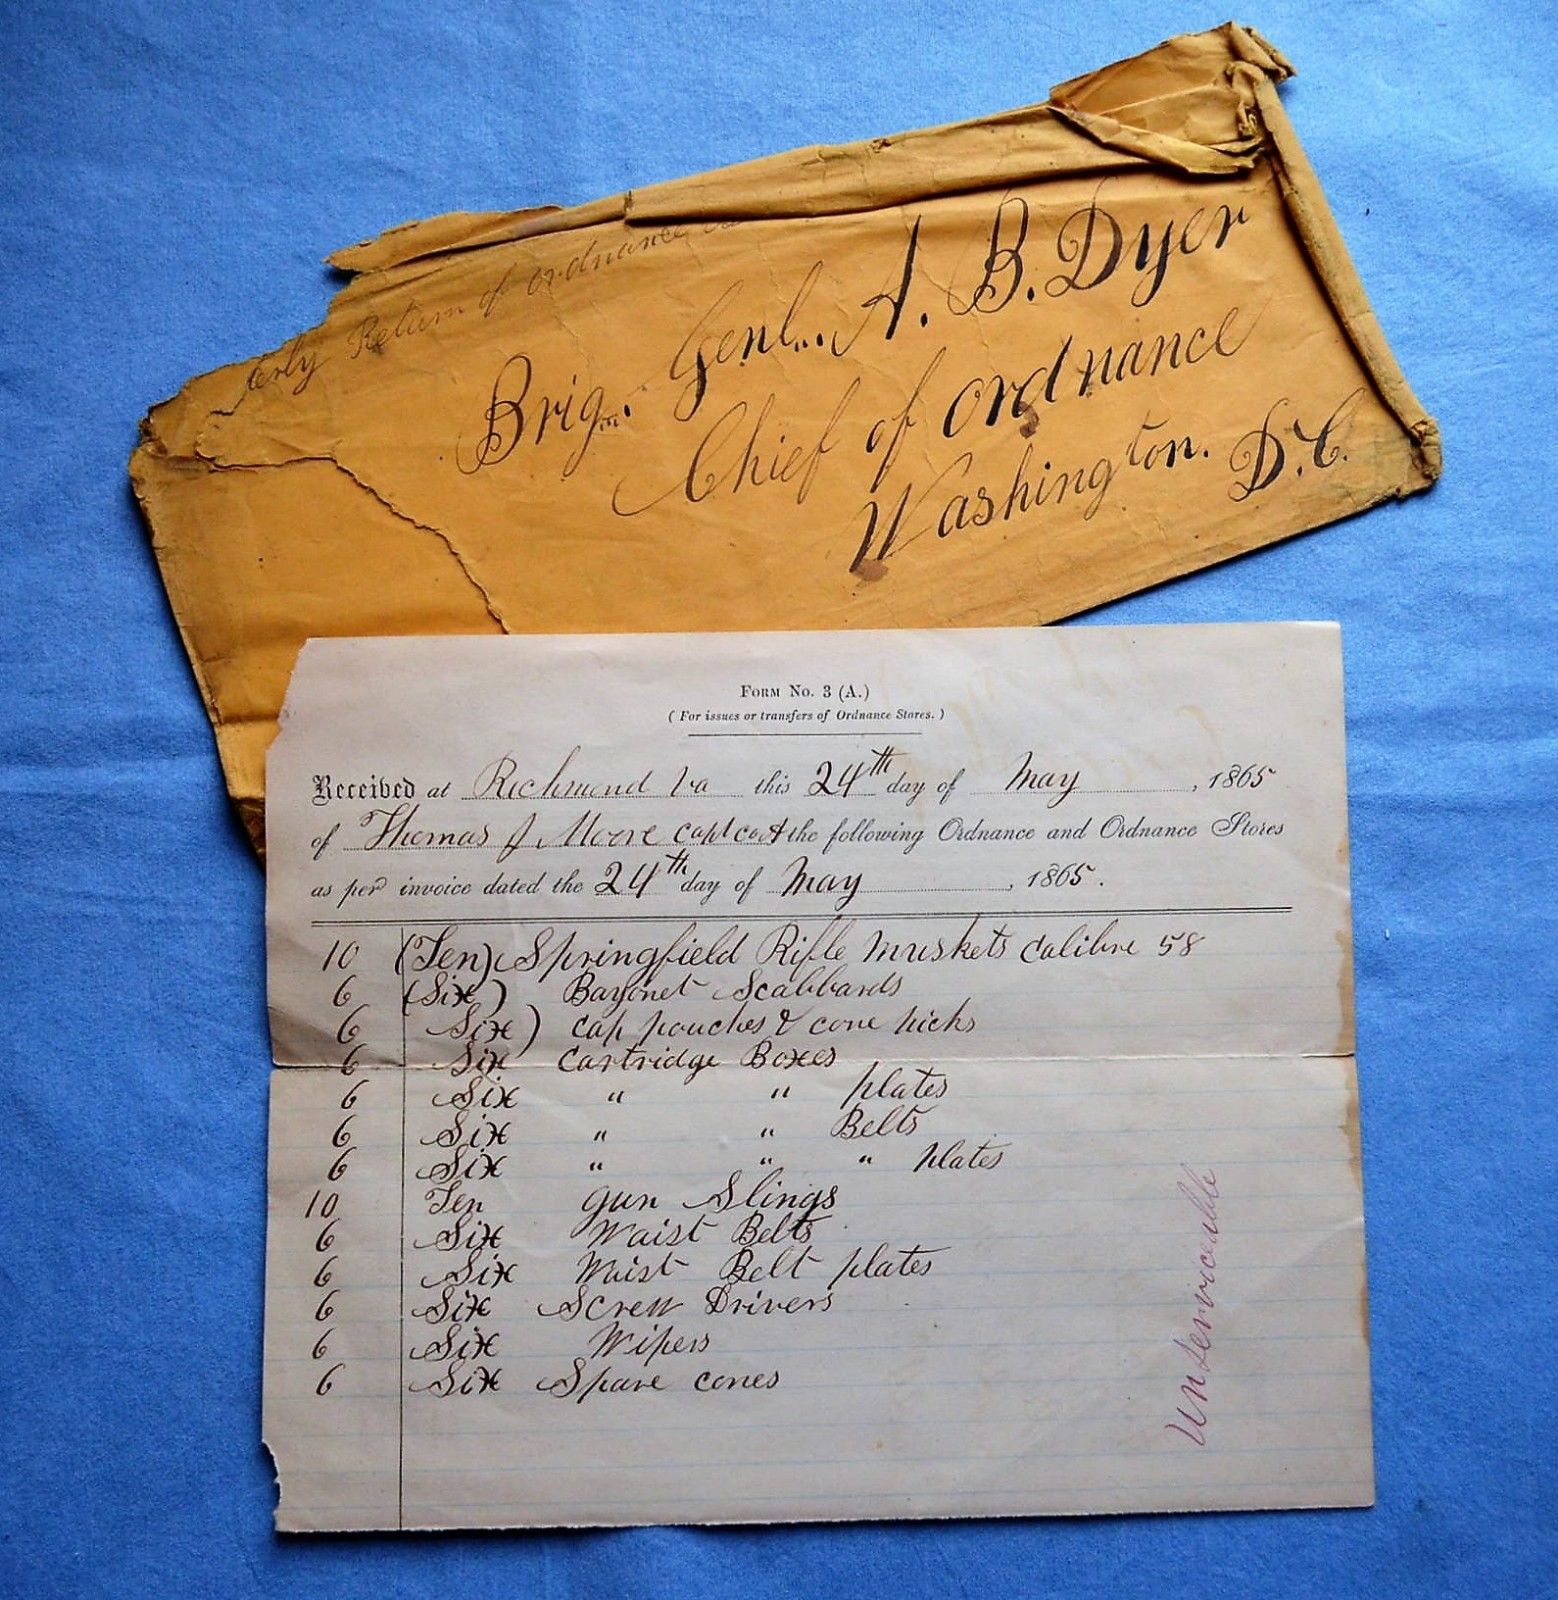 Return of ordnance
Brig. Genl. A. B. Dyer
Chief of ordnance
Washington. D.C.
Form No. 3 (A.)
(For issues or transfers of Ordnance Stores.)
Received at Richmond Va this 24th day of May, 1865
of Thomas J Moore capt co A the following Ordnance and Ordnance Stores
as per invoice dated the 24th day of May, 1865.
10 (Ten) Springfield Rifle Muskets Calibre 58
6 (Six) Bayonet Scabbards
6 Six) Cap pouches & cone picks
6 Six Cartridge Boxes
6 Six " " plates
6 Six " " Belts
6 Six " " " plates
10 Ten Gun Slings
6 Six Waist Belts
6 Six Waist Belt plates
6 Six Screw Drivers
6 Six Wipers
6 Six Spare cones
Unserviceable